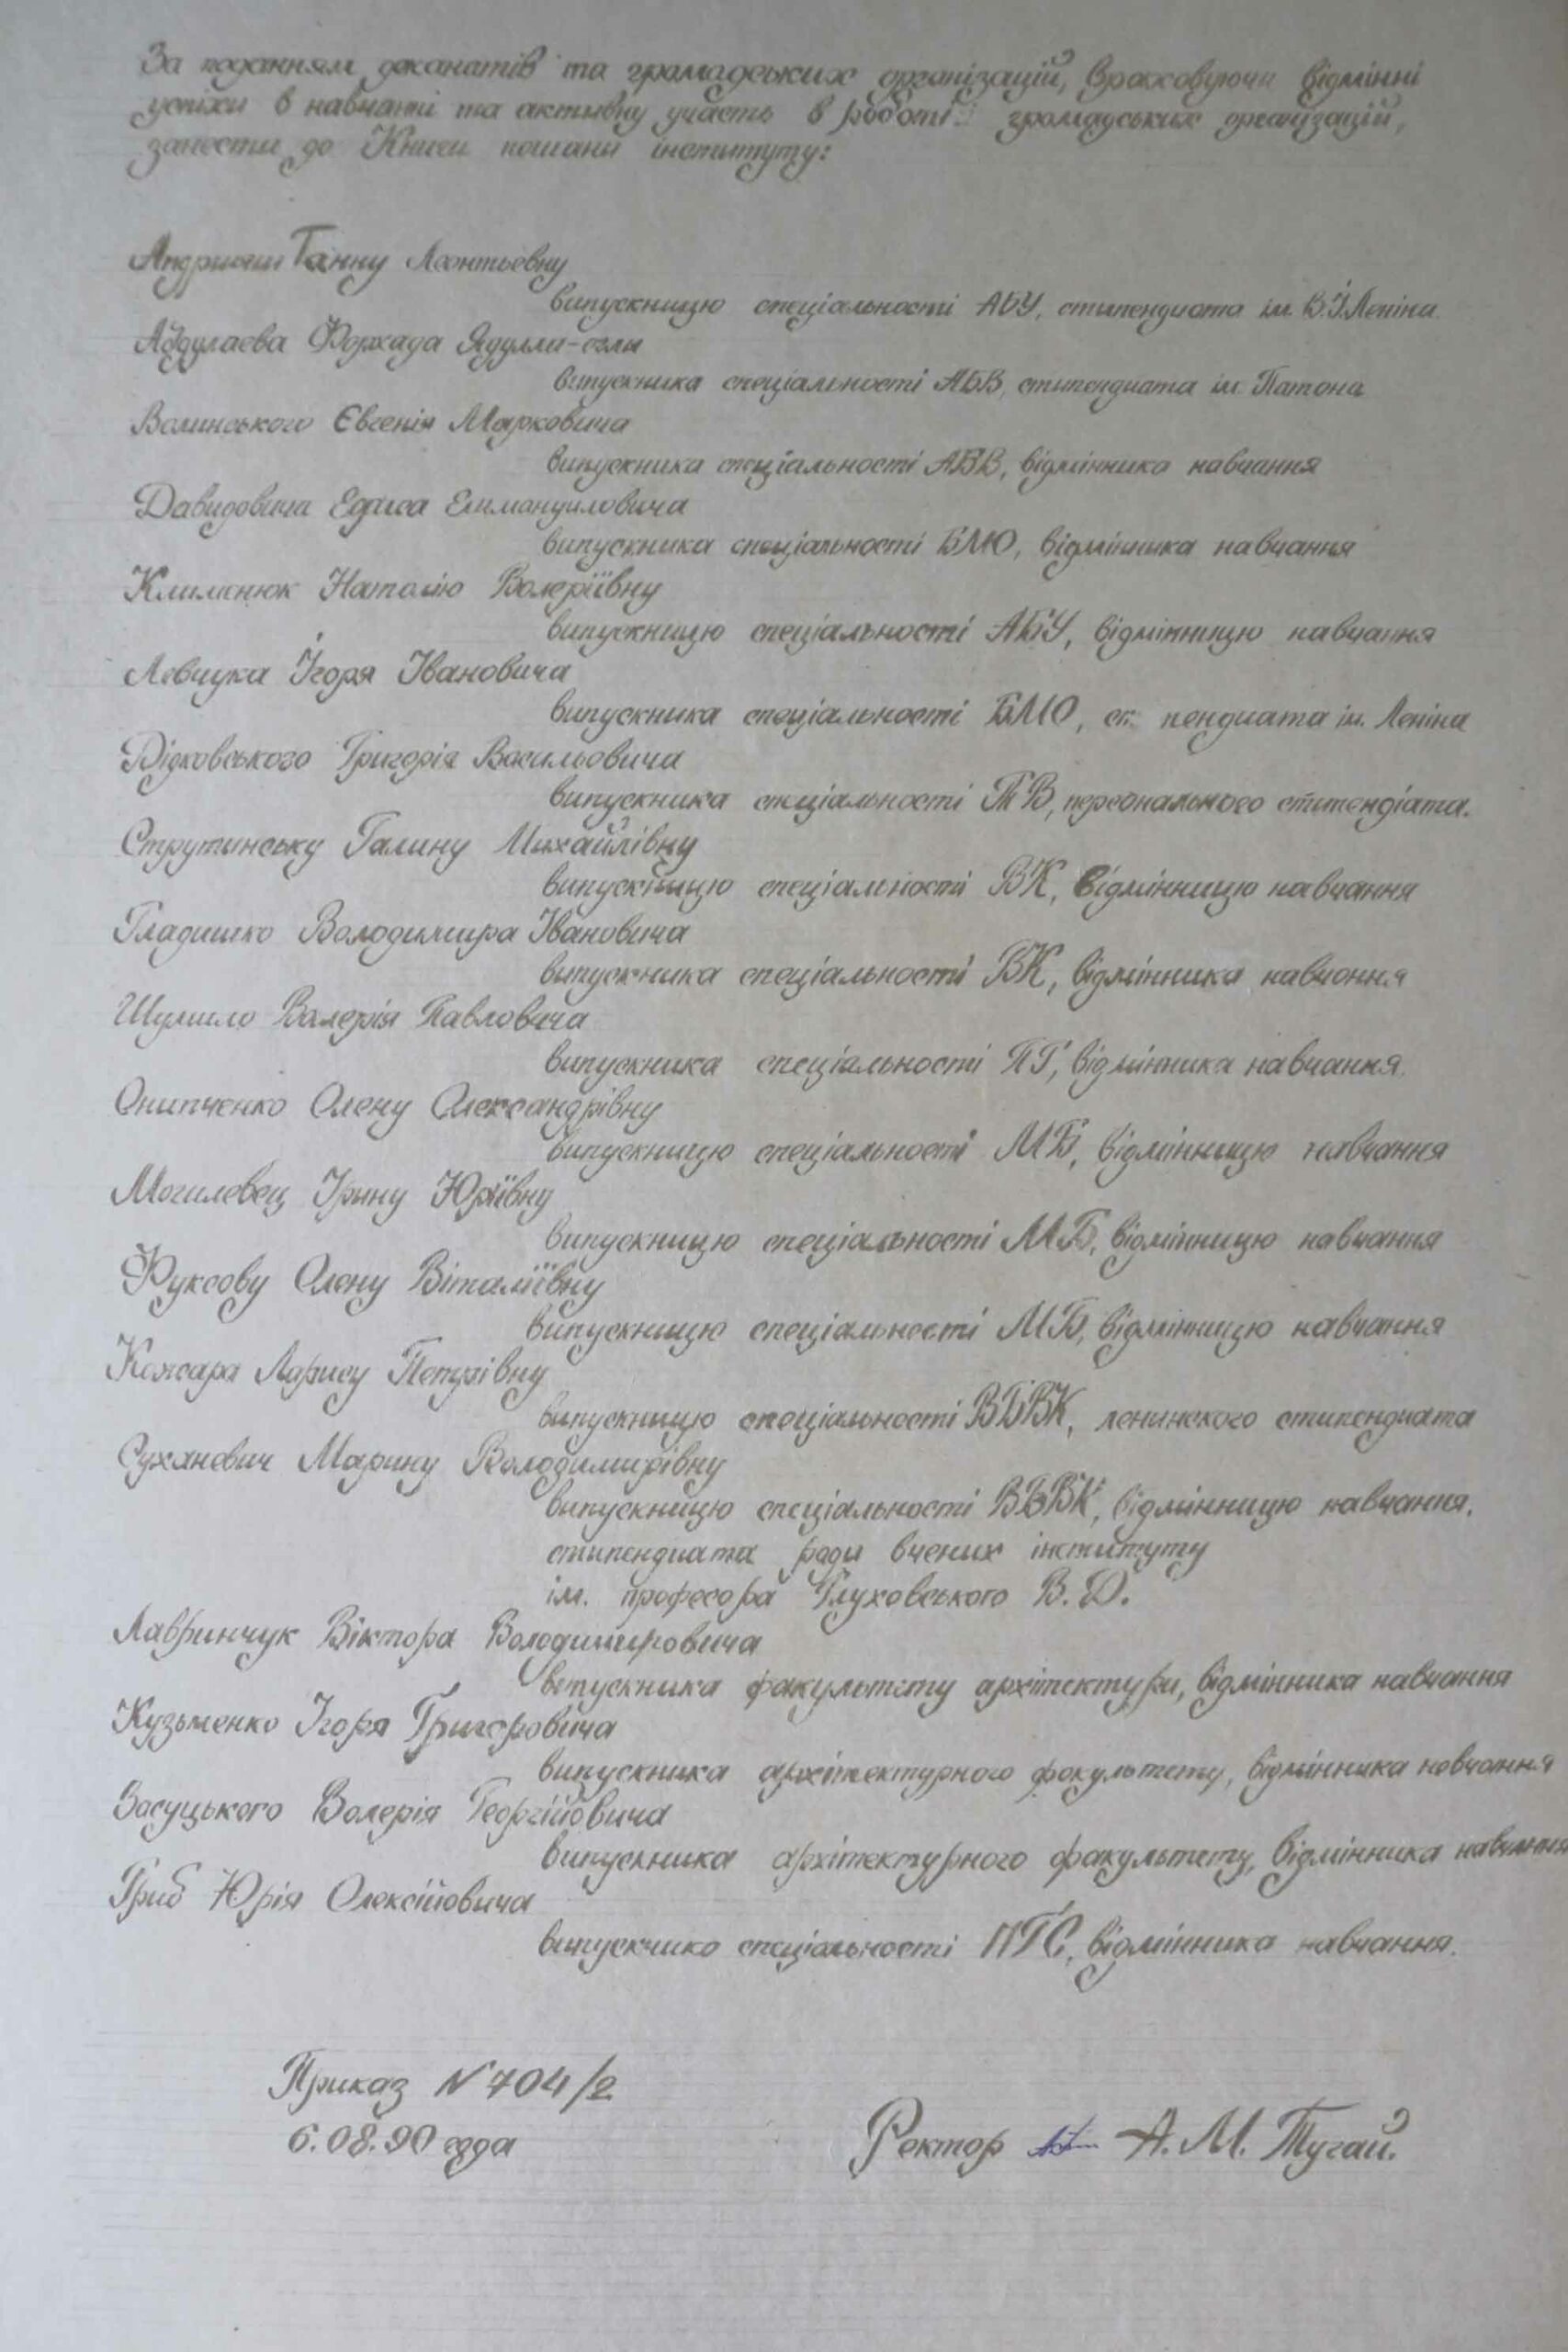 За поданням деканатів та громадських організацій, враховуючи відмінні
успіхи в навчанні та активну участь в роботі громадських організацій,
занести до Книги пошани інституту:
Ганну Леонтьевну
випускницю спеціальності АБУ, стипендиата ім. В.І.Леніна
Абдулаева Форхада Ядулла-оглы
випускника спеціальності АБВ, стипендиата ім. Патона
Волинського Євгенія Марковича
випускника спеціальності АБВ, відмінника навчання
Давидовича Еммануиловича
випускника спеціальності БМЮ, відмінника навчання
Клименюк Наталію Валеріївну
випускницю спеціальності АБУ, відмінницю навчання
Левчука Ігоря Івановича
випускника спеціальності БМЮ, ст пендиата ім. Леніна
Дідковського Григорія Васильовича
випускника спеціальності ТВ, персонального стипендіата.
Струтинську Галину Михайлівну
випускницю спеціальності ВК, відмінницю навчання
Гладишко Володимира Івановича
випускника спеціальності ВК, відмінника навчання
Шумило Валерія Павловича
випускника спеціальності ПГ, відмінника навчання.
Онипченко Олену Олександрівну
випускницю спеціальності МБ, відмінницю навчання
Могилевец Ірину Юріївну
випускницю спеціальності МБ, відмінницю навчання
Фуксову Олену Віталіївну
випускницю спеціальності МБ, відмінницю навчання
Кожара Ларису Петрівну
випускницю спеціальності ВБВК, ленинского стипендиата
Суханевич Марину Володимирівну
випускницю спеціальності ВБВК, відмінницю навчання,
стипендиата ради вчених інституту
ім. професора Глуховського В. Д.
Лавринчук Віктора Володимировича
випускника факультету архітектури, відмінника навчання
Кузьменко Ігоря Григоровича
випускника архітектурного факультету, відмінника навчання
Засуцького Валерія Георгійовича
випускника архітектурного факультету, відмінника навчання
Гриб Юрія Олексійовича
випускника спеціальності ПГС, відмінника навчання.
Приказ N 704/2
6.08.90 года
Ректор А. М. Тугай.